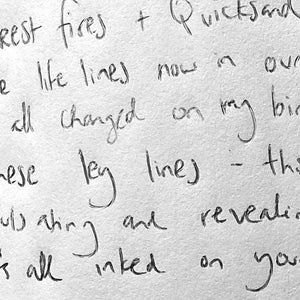 rest fires + Quicksand
e life lines now in our
all changed on my bir
hese ley lines - this
ulsating and revealin
s all inked on your